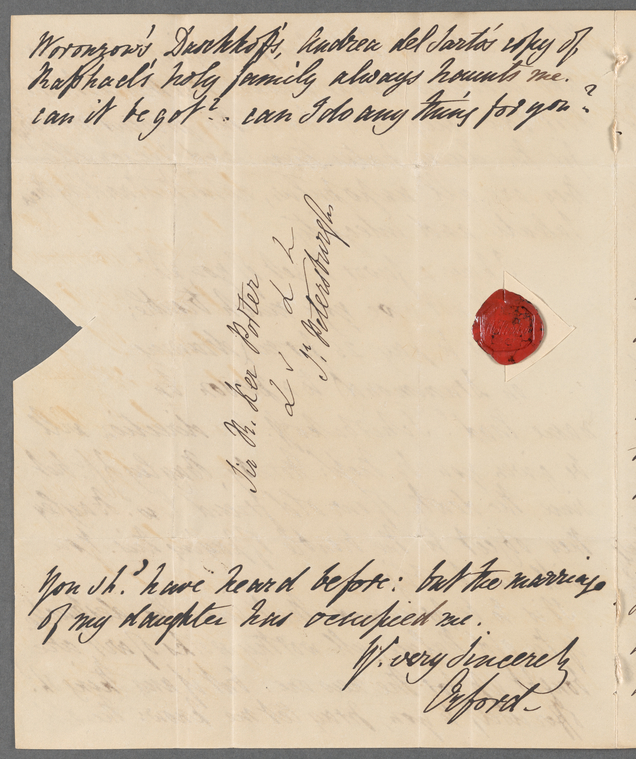 Woronzow's Daschkoff's, Andrea del Sarto's copy of
Raphael's holy family always haunts me.
can it be got? . can I do any thing for you?
Sir R. Ker Porter
&c &c &c
St Petersburgh
You shd have heard before: but the marriage
of my daughter has occupied me.
Yr very Sincerely
Orford